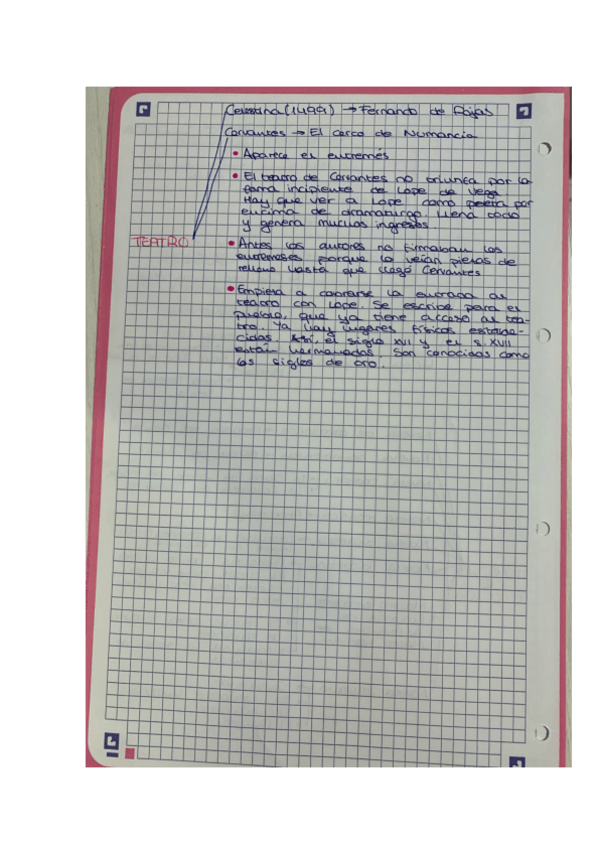 Celestina (1499) → Fernando de Rojas
Cervantes → El cerco de Numancia
• Aparece el entremés
• El teatro de Cervantes no triunfa por la
fama incipiente de Lope de Vega.
Hay que ver a Lope como poeta por
encima de dramaturgo. Llena todo
y genera muchos ingresos.
TEATRO
• Antes los autores no firmaban los
entremeses porque lo veían piezas de
relleno hasta que llegó Cervantes
• Empieza a cobrarse la entrada al
teatro con Lope. Se escribe para el
pueblo, que ya tiene acceso al tea-
tro. Ya hay lugares físicos estable-
cidos. Así, el siglo XVI y el s. XVII
están hermanados. Son conocidos como
los siglos de oro.